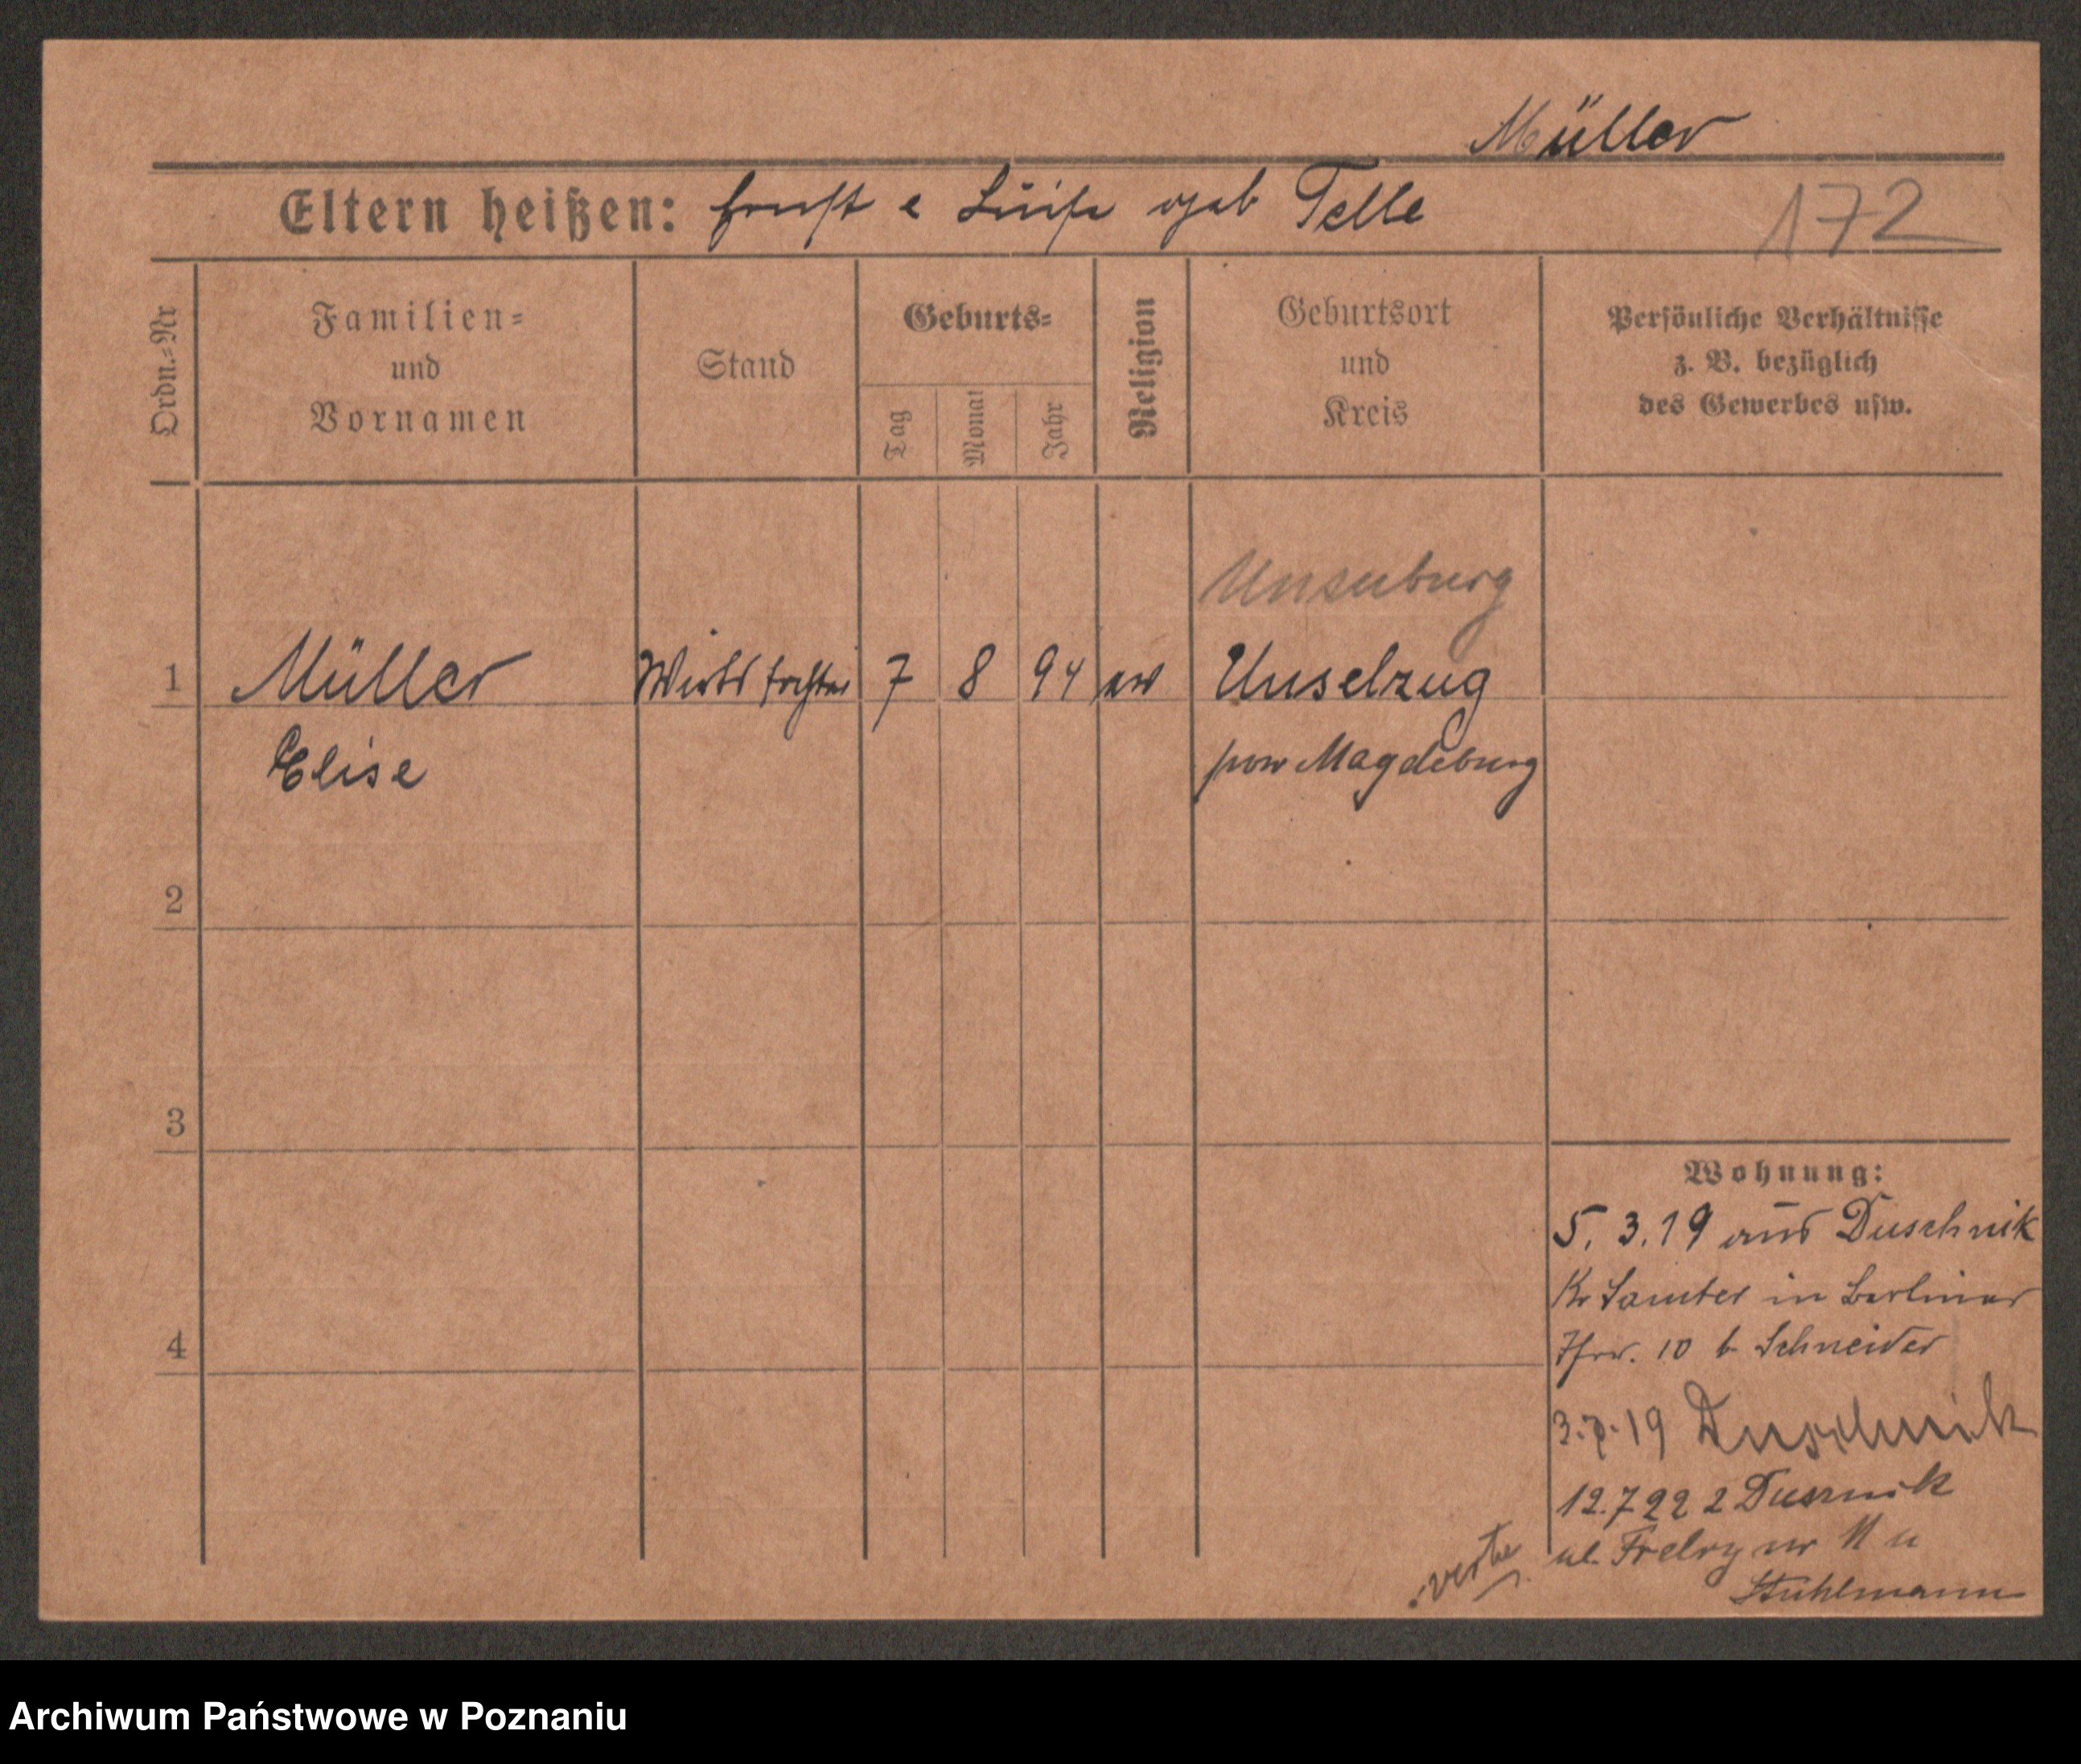 Müller
Eltern heißen: Ernst e Luise geb Telle
172
Ordn.=Nr
Familien=
und
Vornamen
Stand
Geburts=
Tag
Monat
Jahr
Religion
Geburtsort
und
Kreis
Persönliche Verhältnisse
z. B. bezüglich
des Gewerbes usw.
Unseburg
1 Müller 7 8 94 Unselzug
Elise
pow Magdeburg
2
3
Wohnung:
5. 3. 19 aus Duschnik
Kr Samter in Berliner
10 b Schneider
4
3.7.19 Duschnik
12.7 22 z Dusznik
ul. Fredry nr 11 u
Stuhlmann
verte
Archiwum Państwowe w Poznaniu